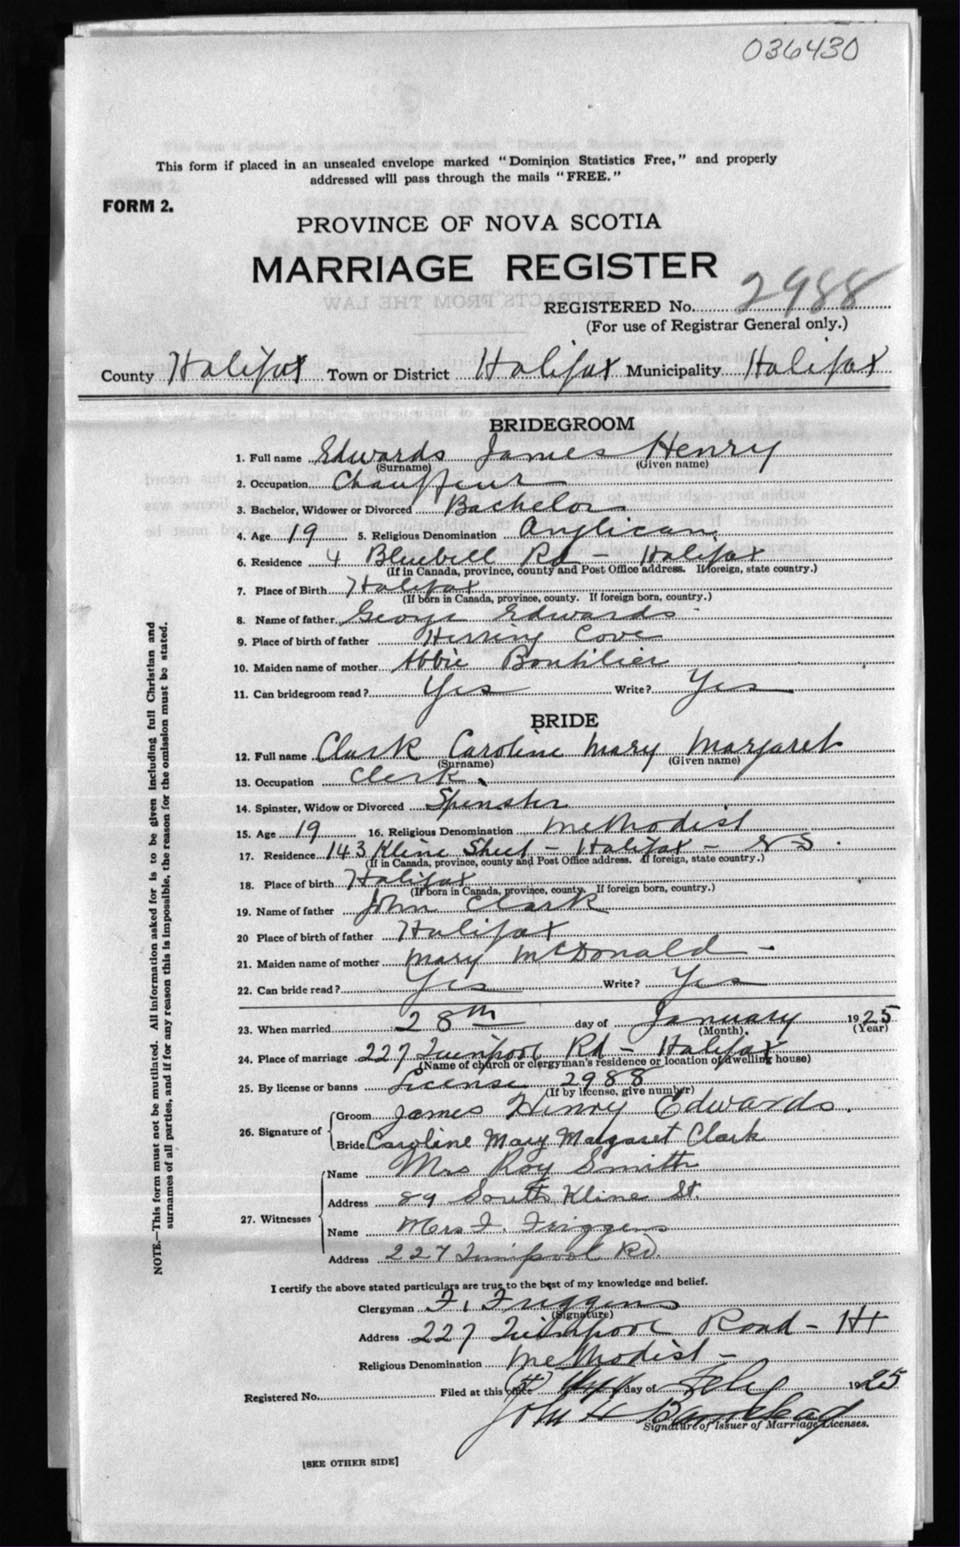 036430
This form if placed in an unsealed envelope marked "Dominion Statistics Free," and properly
addressed will pass through the mails "FREE."
FORM 2.
PROVINCE OF NOVA SCOTIA
MARRIAGE REGISTER
REGISTERED No. 2988
(For use of Registrar General only.)
County Halifax Town or District Halifax Municipality Halifax
BRIDEGROOM
1. Full name Edwards James Henry
(Surname) (Given name)
2. Occupation Chauffeur
3. Bachelor, Widower or Divorced Bachelor
4. Age 19 5. Religious Denomination Anglican
6. Residence 4 Bluebell Rd - Halifax
(If in Canada, province, county and Post Office address. If foreign, state country.)
7. Place of Birth Halifax
(If born in Canada, province, county. If foreign born, country.)
8. Name of father George Edwards
9. Place of birth of father Herring Cove
10. Maiden name of mother Abbie Boutilier
11. Can bridegroom read? Yes Write? Yes
BRIDE
12. Full name Clark Caroline Mary Margaret
(Surname) (Given name)
13. Occupation Clerk
14. Spinster, Widow or Divorced Spinster
15. Age 19 16. Religious Denomination Methodist
17. Residence 143 Kline Street - Halifax - N S.
(If in Canada, province, county and Post Office address. If foreign, state country.)
18. Place of birth Halifax
(If born in Canada, province, county. If foreign born, country.)
19. Name of father John Clark
20 Place of birth of father Halifax
21. Maiden name of mother Mary McDonald -
22. Can bride read? Yes Write? Yes
23. When married 28th day of January 1925
(Month) (Year)
24. Place of marriage 227 Quinpool Rd - Halifax
(Name of church or clergyman's residence or location of dwelling house)
25. By license or banns License 2988
(If by license, give number)
26. Signature of Groom James Henry Edwards.
Bride Caroline Mary Margaret Clark
27. Witnesses Name Mrs Roy Smith
Address 89 South Kline St.
Name Mrs F. Friggens
Address 227 Quinpool Rd.
I certify the above stated particulars are true to the best of my knowledge and belief.
Clergyman F. Friggens
(Signature)
Address 227 Quinpool Road - Hx
Religious Denomination Methodist -
Registered No. Filed at this office day of Feby 1925
John H Barnstead
Signature of Issuer of Marriage Licenses.
[SEE OTHER SIDE]
NOTE.—This form must not be mutilated. All information asked for is to be given including full Christian and
surnames of all parties, and if for any reason this is impossible, the reason for the omission must be stated.